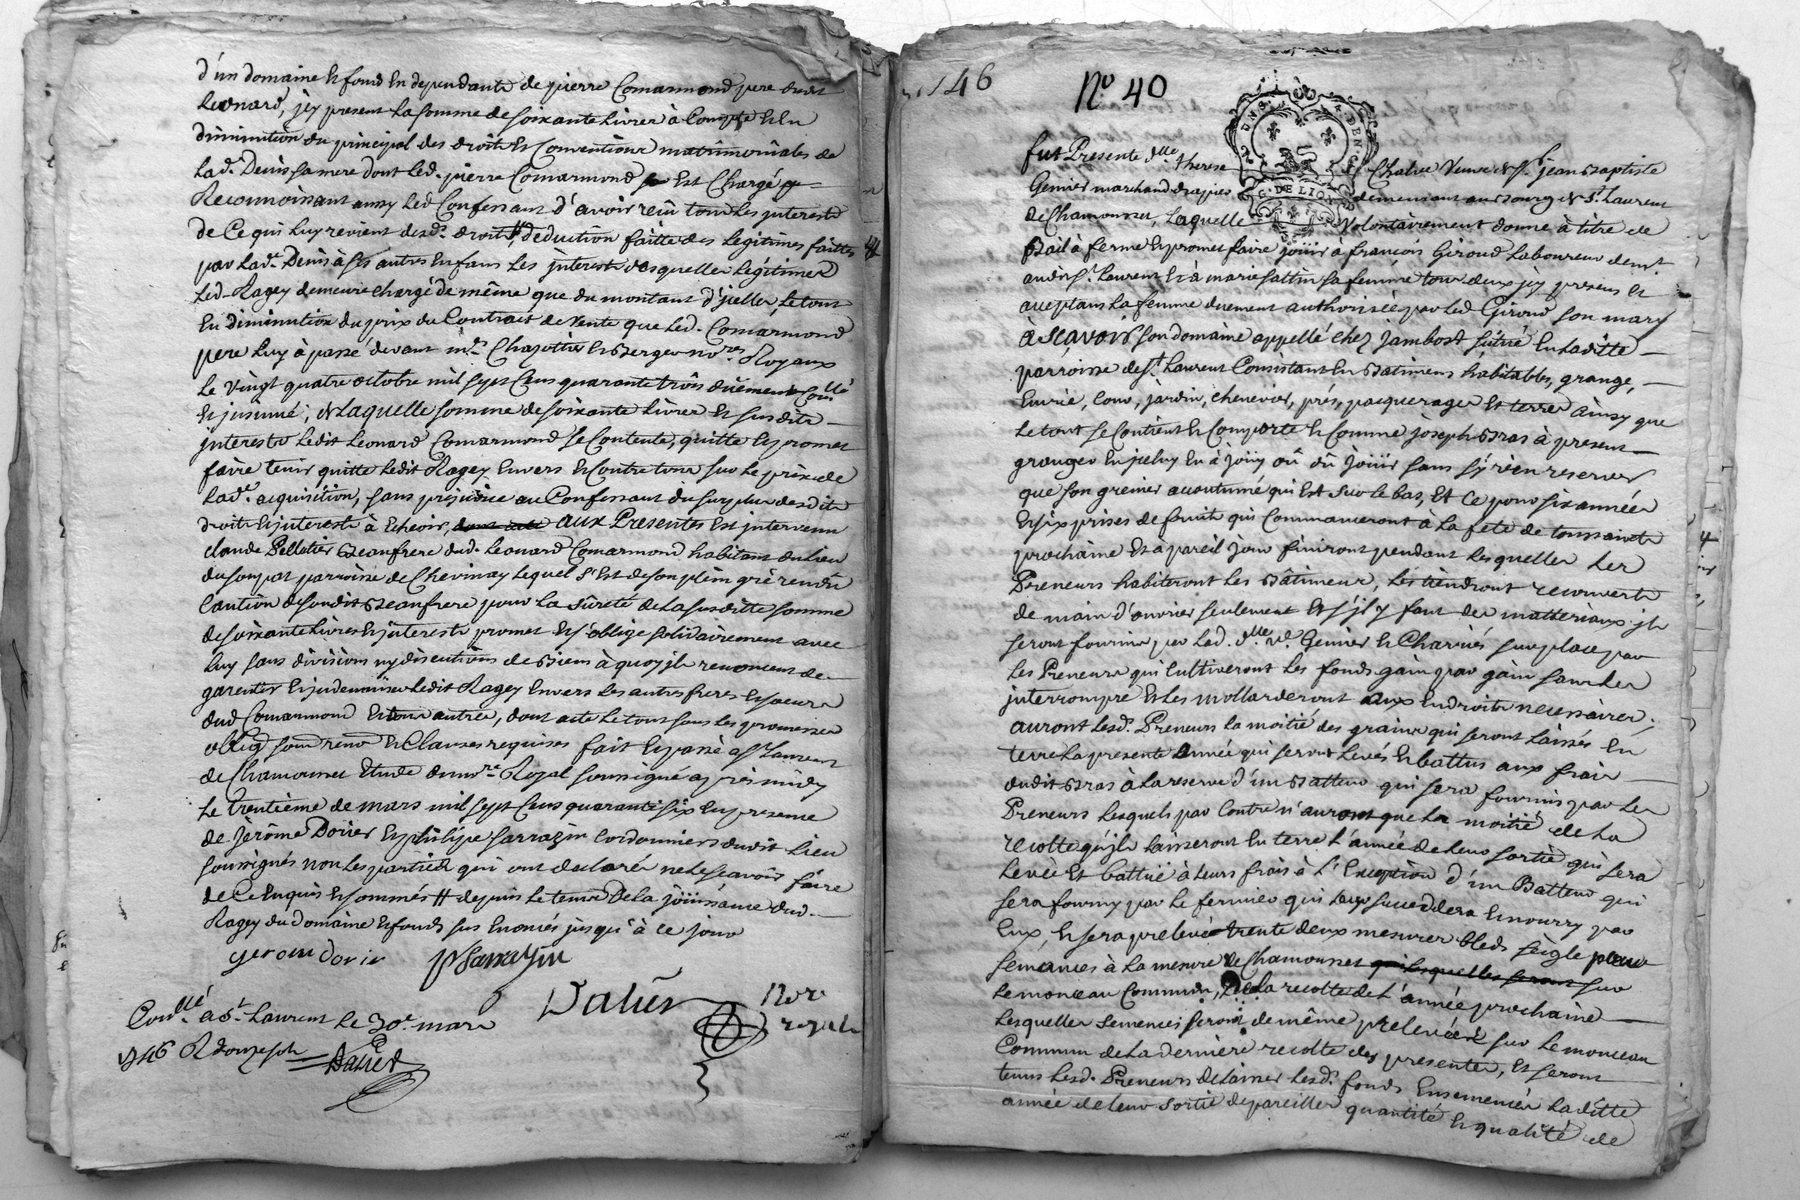 d'un domaine et fond en dependants de pierre Comarmond pere dudit
Leonard, icy present la somme de soixante livres à Compte et en
diminution du principal des droits et Conventions matrimoniales de
lad.e Denis sa mere dont led. pierre Comarmond est Chargé
Reconnoissant aussy led Confessant d'avoir reçu tous les interests
de Ce qui luy revient desd. droits # deduction faitte des legitimes faittes
par lad.e Denis à ses autres enfans les interests desquelles legitimes
led. Ragey demeure chargé de même que du montant d'jcelles, le tout
En diminution du prix du Contrait de vente que led. Comarmond
pere luy à passé devant m.rs Chazottier et Berger no.res Royaux
le vingt quatre octobre mil sept Cens quarante trois duement Con.llé
et jnsinué, de laquelle somme de soixante livres et susdits
interests ledit Leonard Comarmond se Contente, quitte et promet
faire tenir quitte ledit Ragey Envers et Contre tous sur le prix de
lad.e acquisition, sans prejudice au Confessant du surplus desdits
droits et interests à Echeoir, aux Presentes est intervenu
claude Pelletier Beaufrere dud. Leonard Comarmond habitant du lieu
du parroisse de Chevinay lequel s'est de son plein gré rendu
Caution desondit Beaufrere pour la sûreté de la susditte somme
de soixante livres et interests promet et s'oblige solidairement avec
luy sans division ny discution de Biens à quoy jls renoncent de
garentir et jndemniser ledit Ragey Envers les autres freres et soeurs
dud Comarmond et tous autres, dont acte le tout sous les promesses
oblig. soum. renon. et Clauses requises fait et passé a S.t Laurent
de Chamousset Etude du no.re Royal soussigné apres midy
le trentième de mars mil sept Cens quarante six en presence
de Jèrôme Dorier et philipe sarrazin Cordonniers dudit lieu
soussignés non les parties qui ont declaré ne le scavoir faire
de Ce Enquis et sommés # depuis le tems de la jöüissance dud.
Ragey du domaine et fonds sus Enoncés jusqu'à ce jour
gerome dorier PSarrazin
Dalier Nore royal
Con.llé à S.t Laurent le 30.e mars
1746 R douze sols Dalier
146 No. 40
G. DE LION
fut Presente d.lle Therese Chatre Veuve de S.r jean Baptiste
Genier marchand drapier demeurant au Bourg de S.t Laurent
de Chamousset, laquelle Volontairement donne à titre de
Bail à ferme et promet faire jöüir à françois Giroud Laboureur dem.t
aud. S.t Laurent et à marie sa femme tous deux jcy presens et
acceptans la femme duement authorisée par led Giroud son mary
à SCavoir son domaine appellé chez Jambost sçitué en laditte
parroisse de S.t Laurent Consistant En Batimens habitables, grange,
Ecurie, Cour, jardin, chenevier, prés, pacquerages et terres ainsy que
le tout se Contient et Comporte et Comme joseph Bras à present
granger en jceluy en à joüy oû dû joüir sans s'y rien reserver
que son grenier acoutumé qui Est sur le bas, Et Ce pour six années
et six prises de fruits qui Commanceront à la fete de toussaints
prochaine Et à pareil jour finiront pendant lesquelles les
Preneurs habiteront les Bâtimens, les tiendront recouverts
de main d'ouvrier seulement Et s'il y faut des matteriaux jls
seront fournis par lad. d.lle v.e Genier et Chariés sur place par
les Preneurs qui Cultiveront les fonds gain par gain sans les
jnterrompre et les mollarderont aux Endroits necessaires;
auront lesd. Preneurs la moitié des grains qui seront laissés En
terre la presente année qui seront levés et battus aux frais
dudit Bras à la reserve d'un Batteur qui sera fournis par les
Preneurs lesquels par Contre n'auront que la moitié de la
recolte qu'jls laisseront En terre l'année de leur sortie qui sera
levée Et battüe à leurs frais à l'Exception d'un Batteur qui
sera fourny par le fermier qui leur succedera Et nourry par
Eux, Et sera prelevé trente deux mesures bled seigle pour
semences à la mesure de Chamousset sur
le monceau Commun, de la recolte de l'année prochaine
lesquelles semences seront de même prelevées sur le monceau
Commun de la derniere recolte des presentes, Et seront
tenus lesd. Preneurs de laisser lesd. fonds Ensemencés laditte
année de leur sortie de pareilles quantité et qualité de